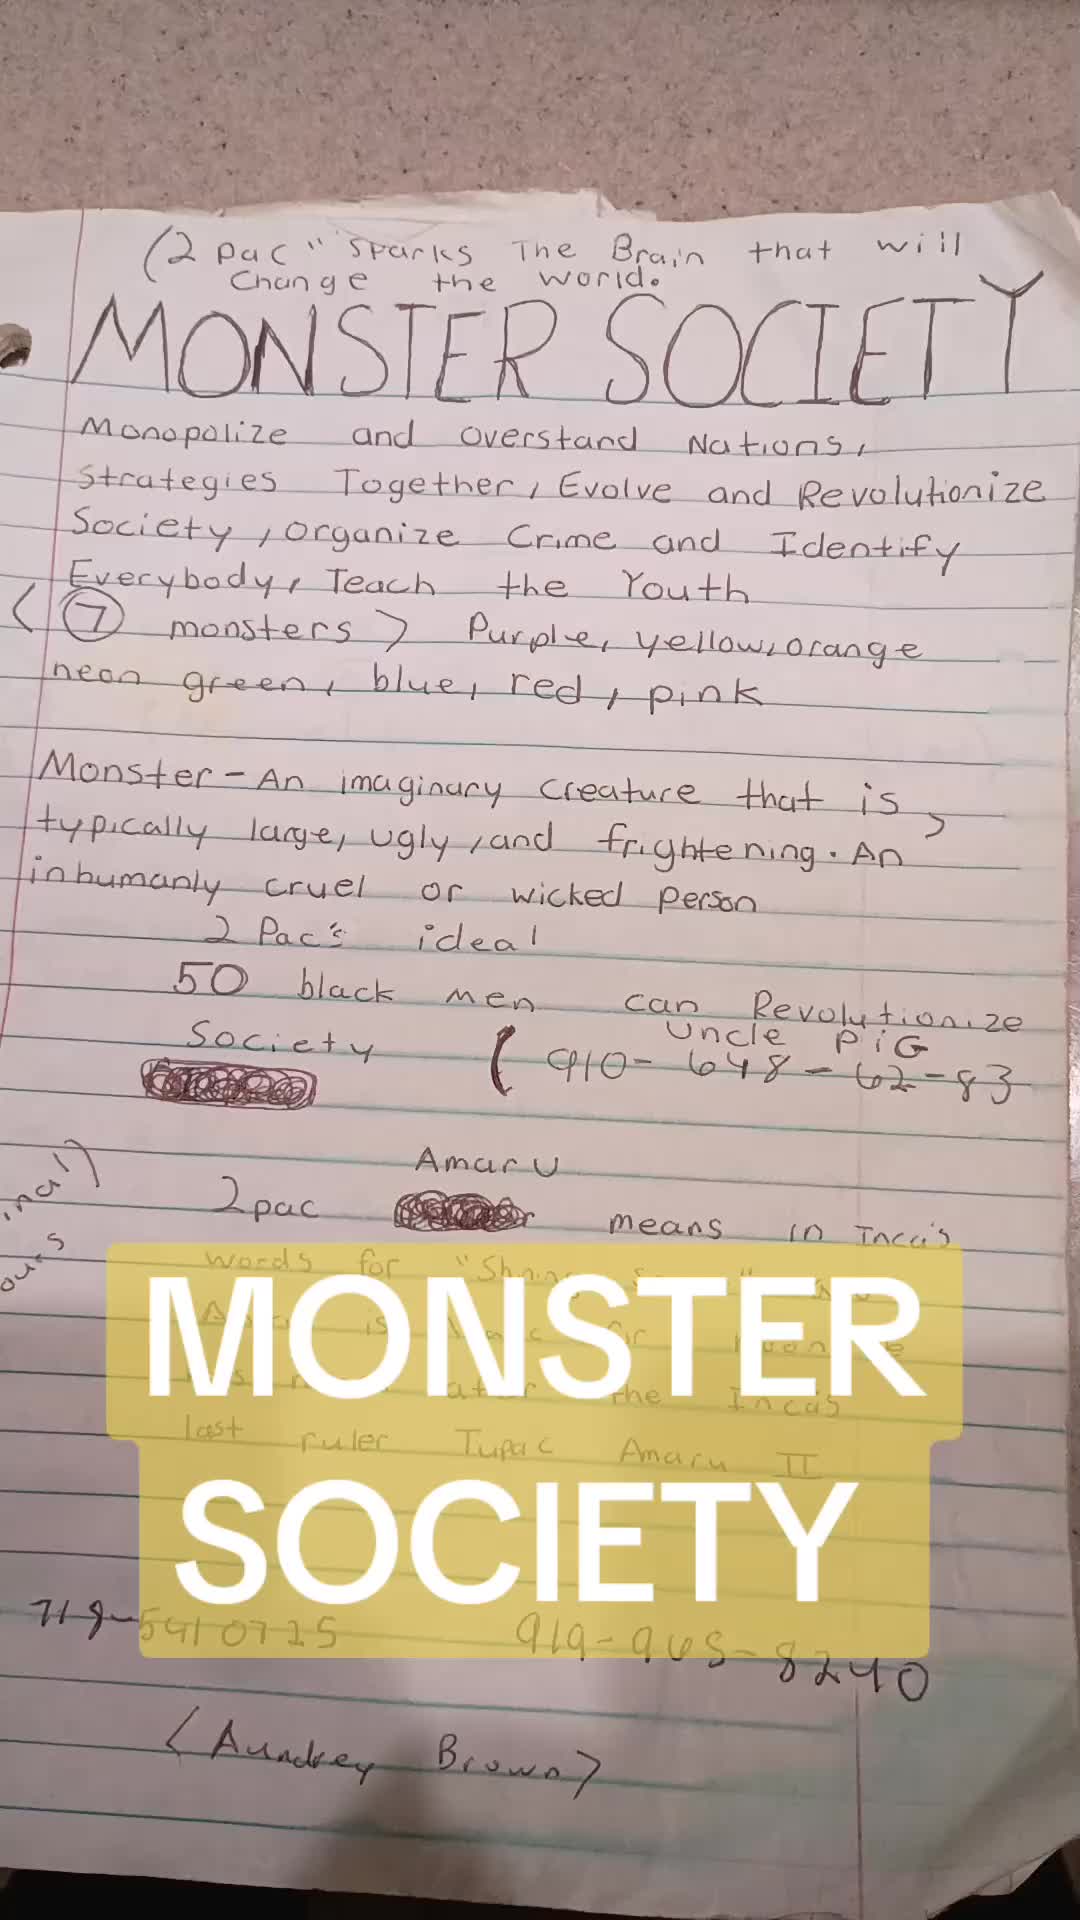 (2 pac" Sparks The Brain that will
Change the world.
MONSTER SOCIETY
Monopolize and overstand Nations,
Strategies Together, Evolve and Revolutionize
Society, organize Crime and Identify
Everybody, Teach the Youth
< 7 monsters > Purple, yellow, orange
neon green, blue, red, pink
Monster - An imaginary creature that is,
typically large, ugly, and frightening. An
inhumanly cruel or wicked person
2 Pac's ideal
50 black men can Revolutionize
Society
Uncle PiG
( 910-648-62-83
Amaru
2pac means in Inca's
words for
is
after the Inca's
last ruler Tupac Amaru II
MONSTER
SOCIETY
718-5410725 919-965-8240
<Aundrey Brown>